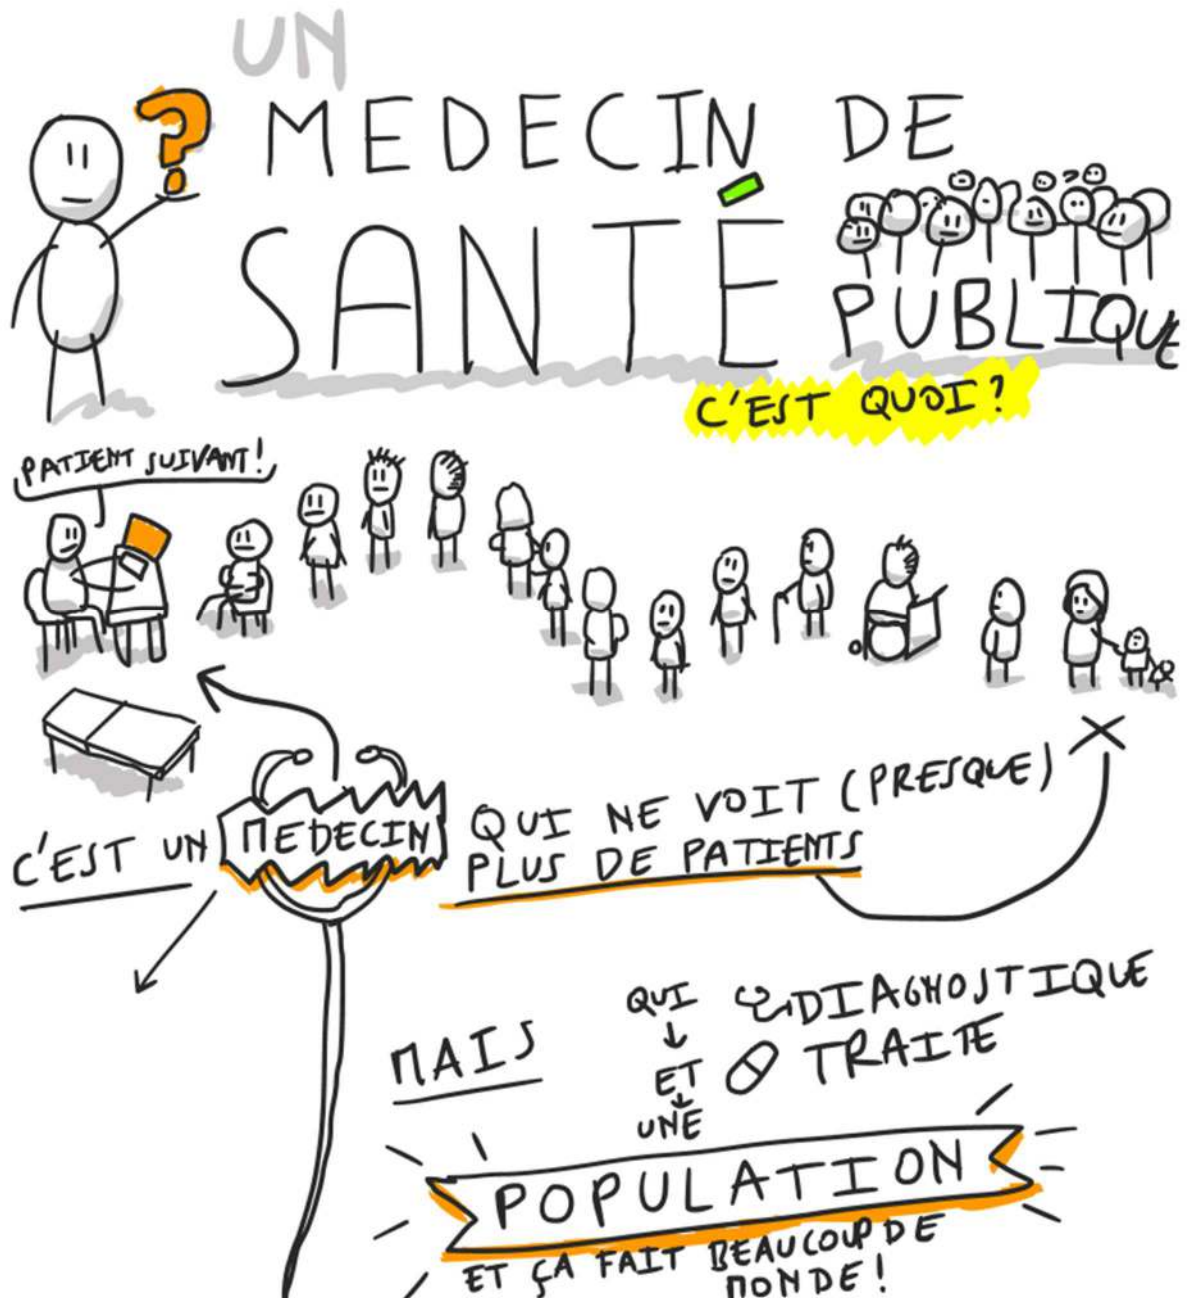 UN
MEDECIN DE
SANTÉ PUBLIQUE
C'EST QUOI?
PATIENT SUIVANT!
C'EST UN MEDECIN QUI NE VOIT (PRESQUE)
PLUS DE PATIENTS
MAIS
QUI DIAGNOSTIQUE
ET TRAITE
UNE
POPULATION
ET ÇA FAIT BEAUCOUP DE
MONDE!